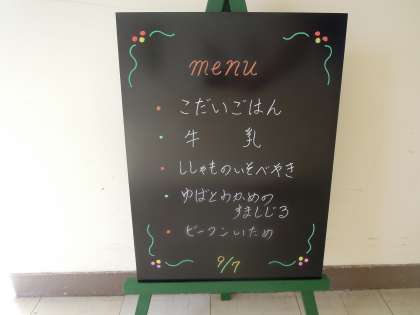 menu
・こだいごはん
・牛 乳
・ししゃものいそべやき
・ゆばとわかめの
すましじる
・ビーフンいため
9/7